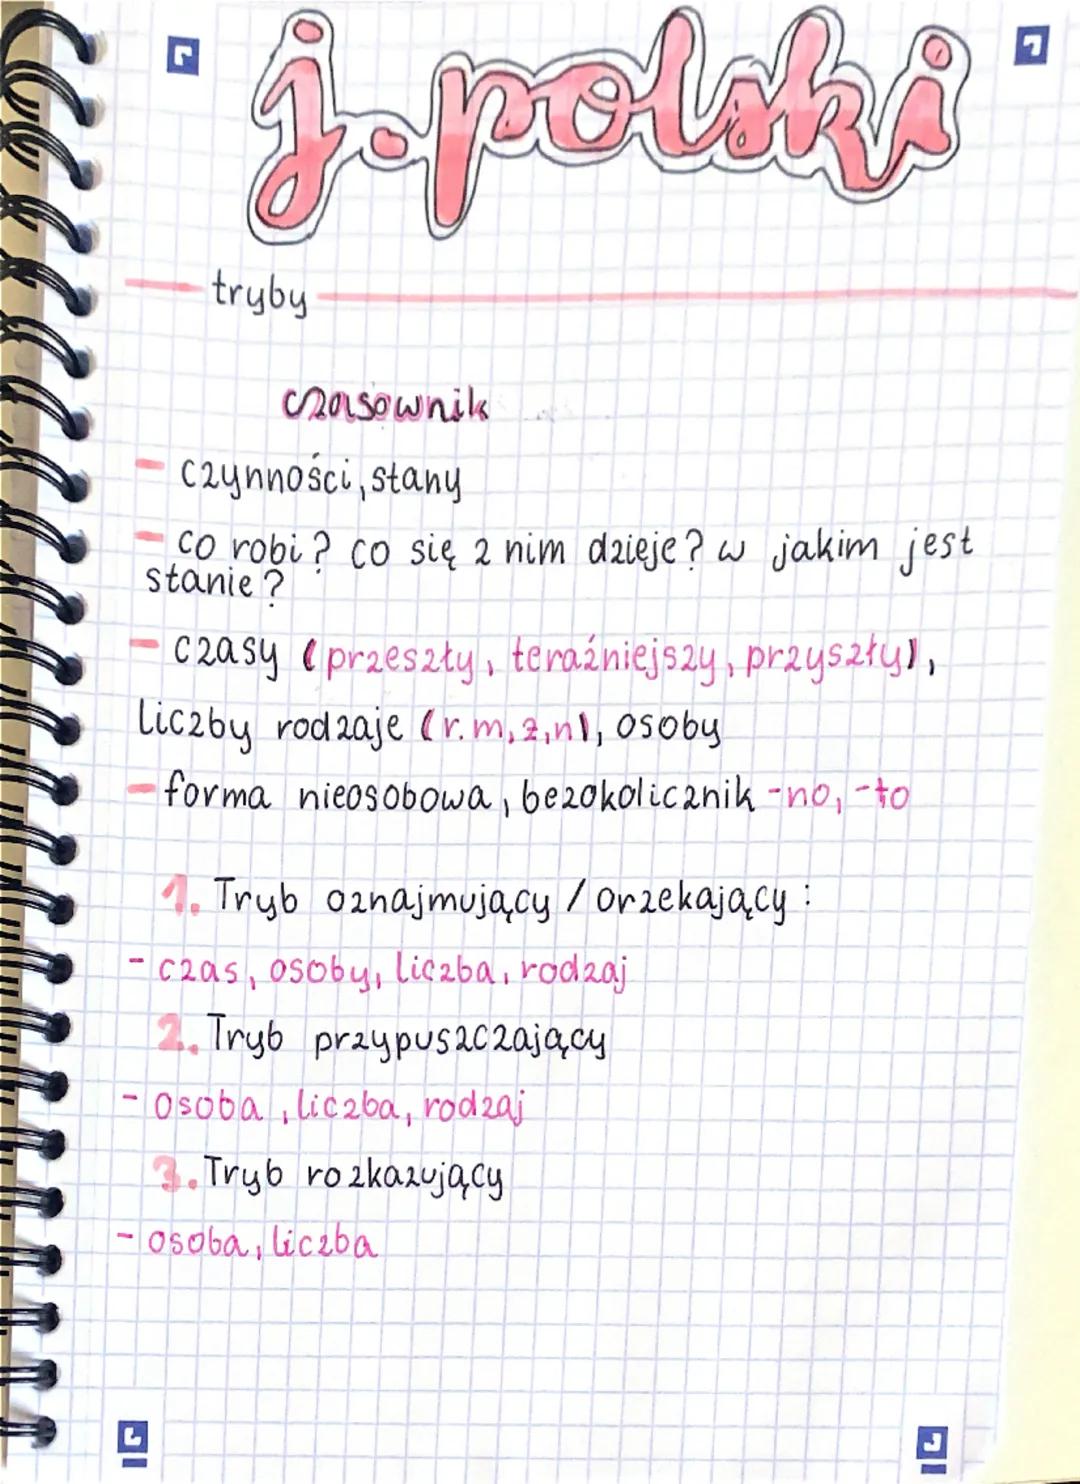 j. polski
tryby
czasownik
- czynności, stany
- co robi? co się z nim dzieje? w jakim jest
stanie?
- czasy (przeszły, teraźniejszy, przyszły),
liczby rodzaje (r. m, ż, n), osoby
- forma nieosobowa, bezokolicznik -no, -to
1. Tryb oznajmujący / orzekający:
- czas, osoby, liczba, rodzaj
2. Tryb przypuszczający
- osoba, liczba, rodzaj
3. Tryb rozkazujący
- osoba, liczba